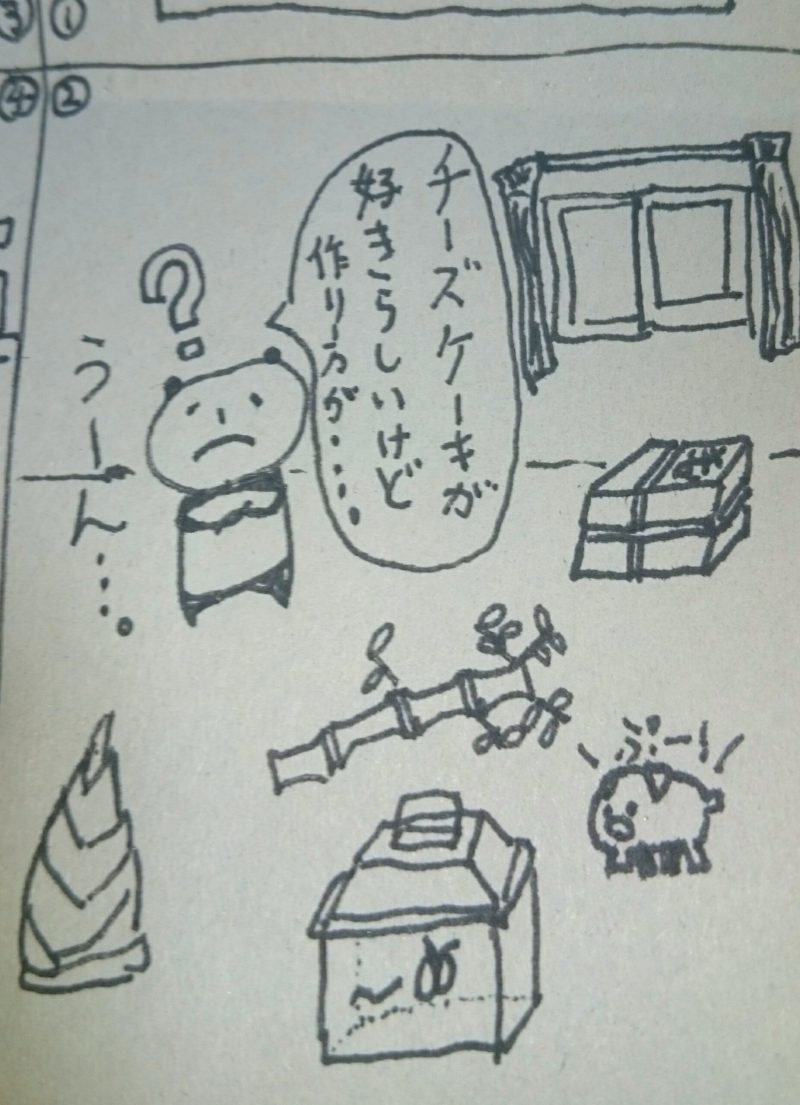 ③
①
④
②
チーズケーキが
好きらしいけど
作り方が・・・・
?
うーん・・・。
ぶー!